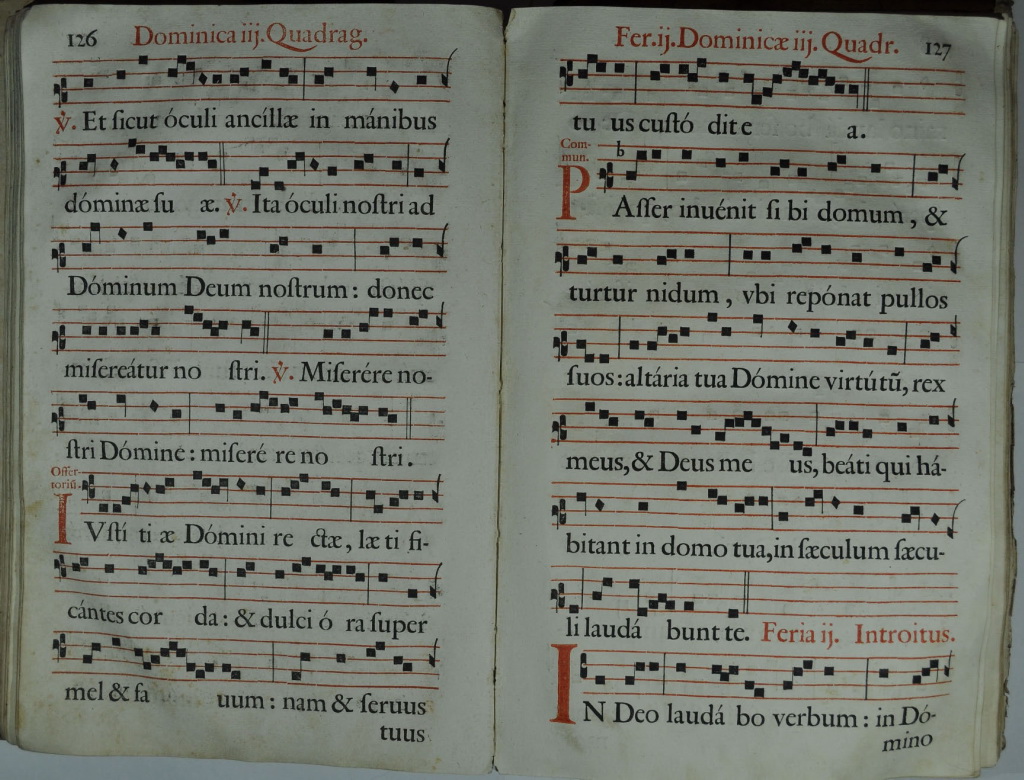 126 Dominica iij. Quadrag.
℣. Et ſicut óculi ancíllæ in mánibus
dóminæ ſu æ. ℣. Ita óculi noſtri ad
Dóminum Deum noſtrum: donec
miſereátur no ſtri. ℣. Miſerére no-
ſtri Dómine: miſeré re no ſtri.
Offer-
toriũ.
IVſti ti æ Dómini re ctæ, læ ti fi-
cántes cor da: & dulci ó ra ſuper
mel & fa uum: nam & ſeruus
tuus
Fer. ij. Dominicæ iij. Quadr. 127
tu us cuſtó dit e a.
Com-
mun.
b
PAſſer inuénit ſi bi domum, &
turtur nidum, vbi repónat pullos
ſuos: altária tua Dómine virtútũ, rex
meus, & Deus me us, beáti qui há-
bitant in domo tua, in ſæculum ſæcu-
li laudá bunt te. Feria ij. Introitus.
IN Deo laudá bo verbum: in Dó-
mino